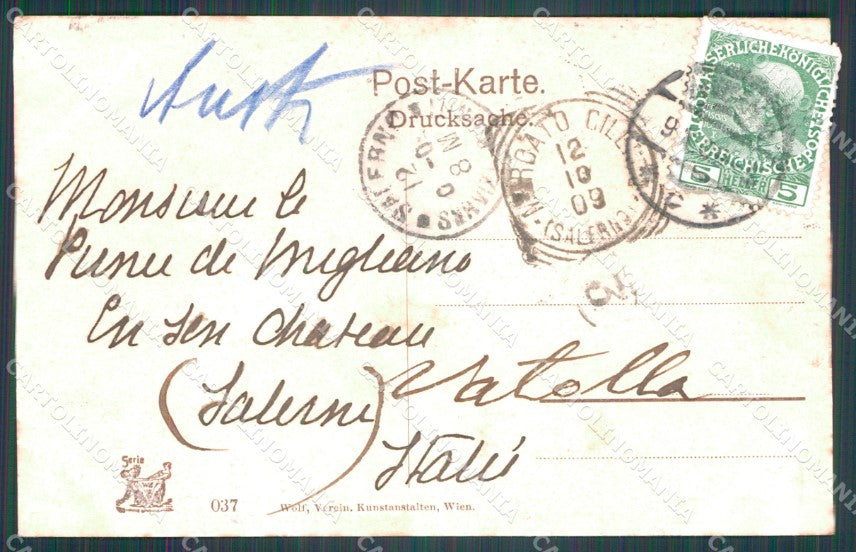 Post-Karte.
Drucksache.
KAISERLICHE KÖNIGLICHE
ÖSTERREICHISCHE POST
5 HELLER 5
MERCATO CILE
12
10
09
(SALERNO)
SALERNO
12
Monsieur le
Prince de Migliano
En son Chateau
Vatolla
(Salerne)
Italie
Serie
037
Wolf, Verein. Kunstanstalten, Wien.
CARTOLINOMANIA